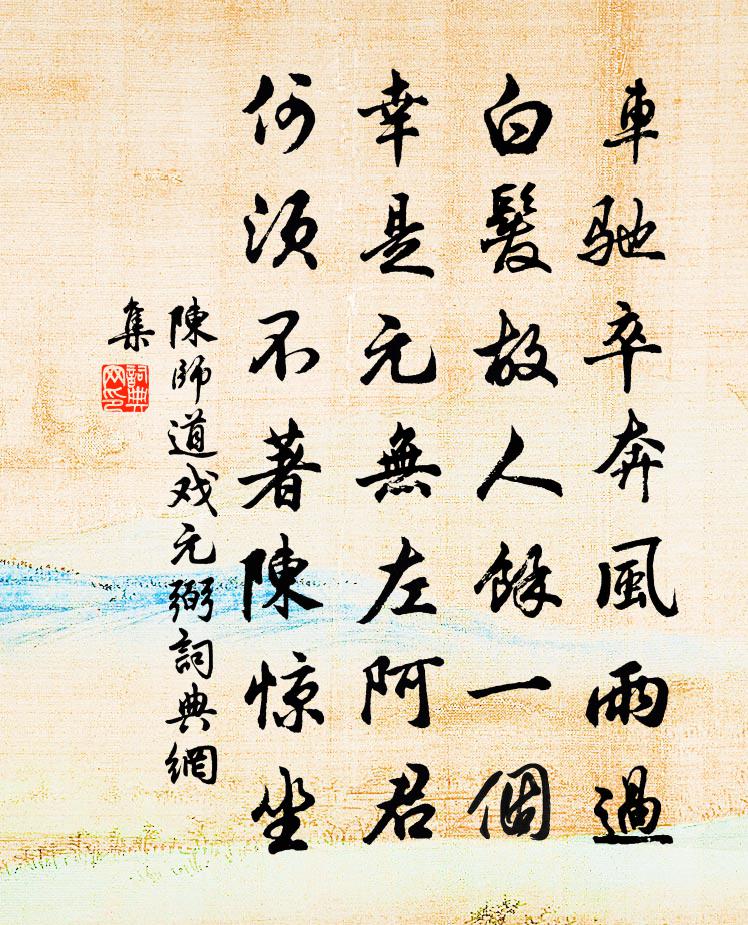 車馳卒奔風雨過
白髮故人餘一個
幸是元無左阿君
何須不著陳惊坐
陳師道戏元弼詞典網
集
詞典
网印